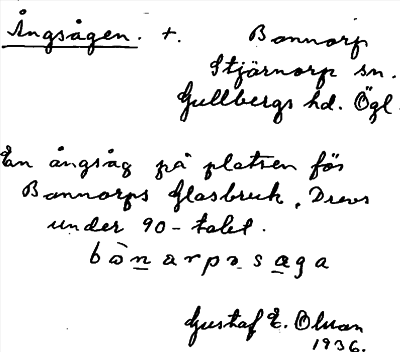 Ångsågen. +. Bonnorp
Stjärnorp sn.
Gullbergs hd. Ögl.
En ångsåg på platsen för
Bonnorps Glasbruk. Drevs
under 90-talet.
Gustaf E. Olsson
1936.